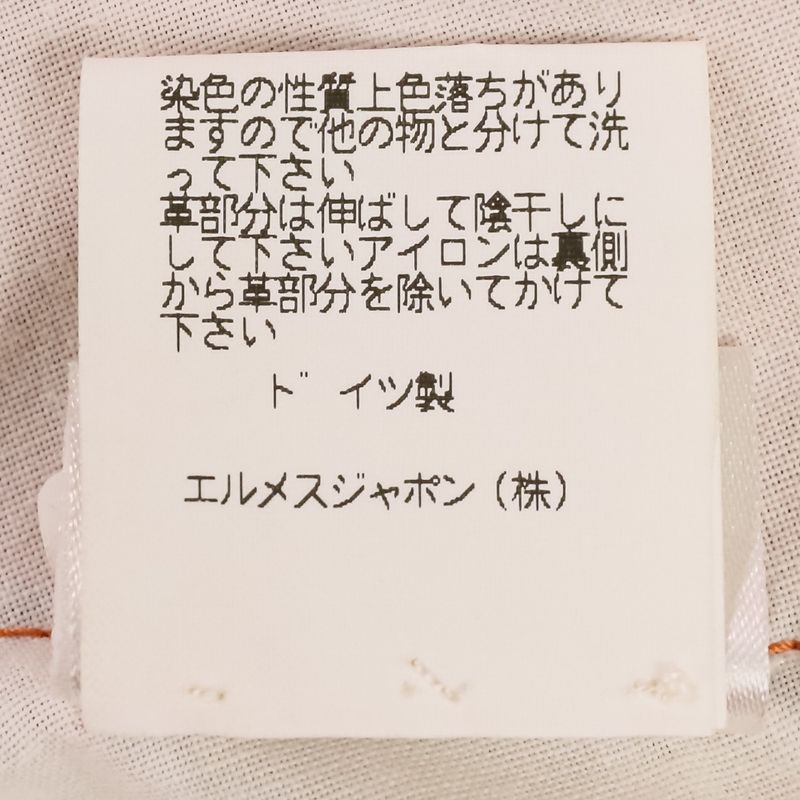 染色の性質上色落ちがあり
ますので他の物と分けて洗
って下さい
革部分は伸ばして陰干しに
して下さいアイロンは裏側
から革部分を除いてかけて
下さい
ドイツ製
エルメスジャポン（株）